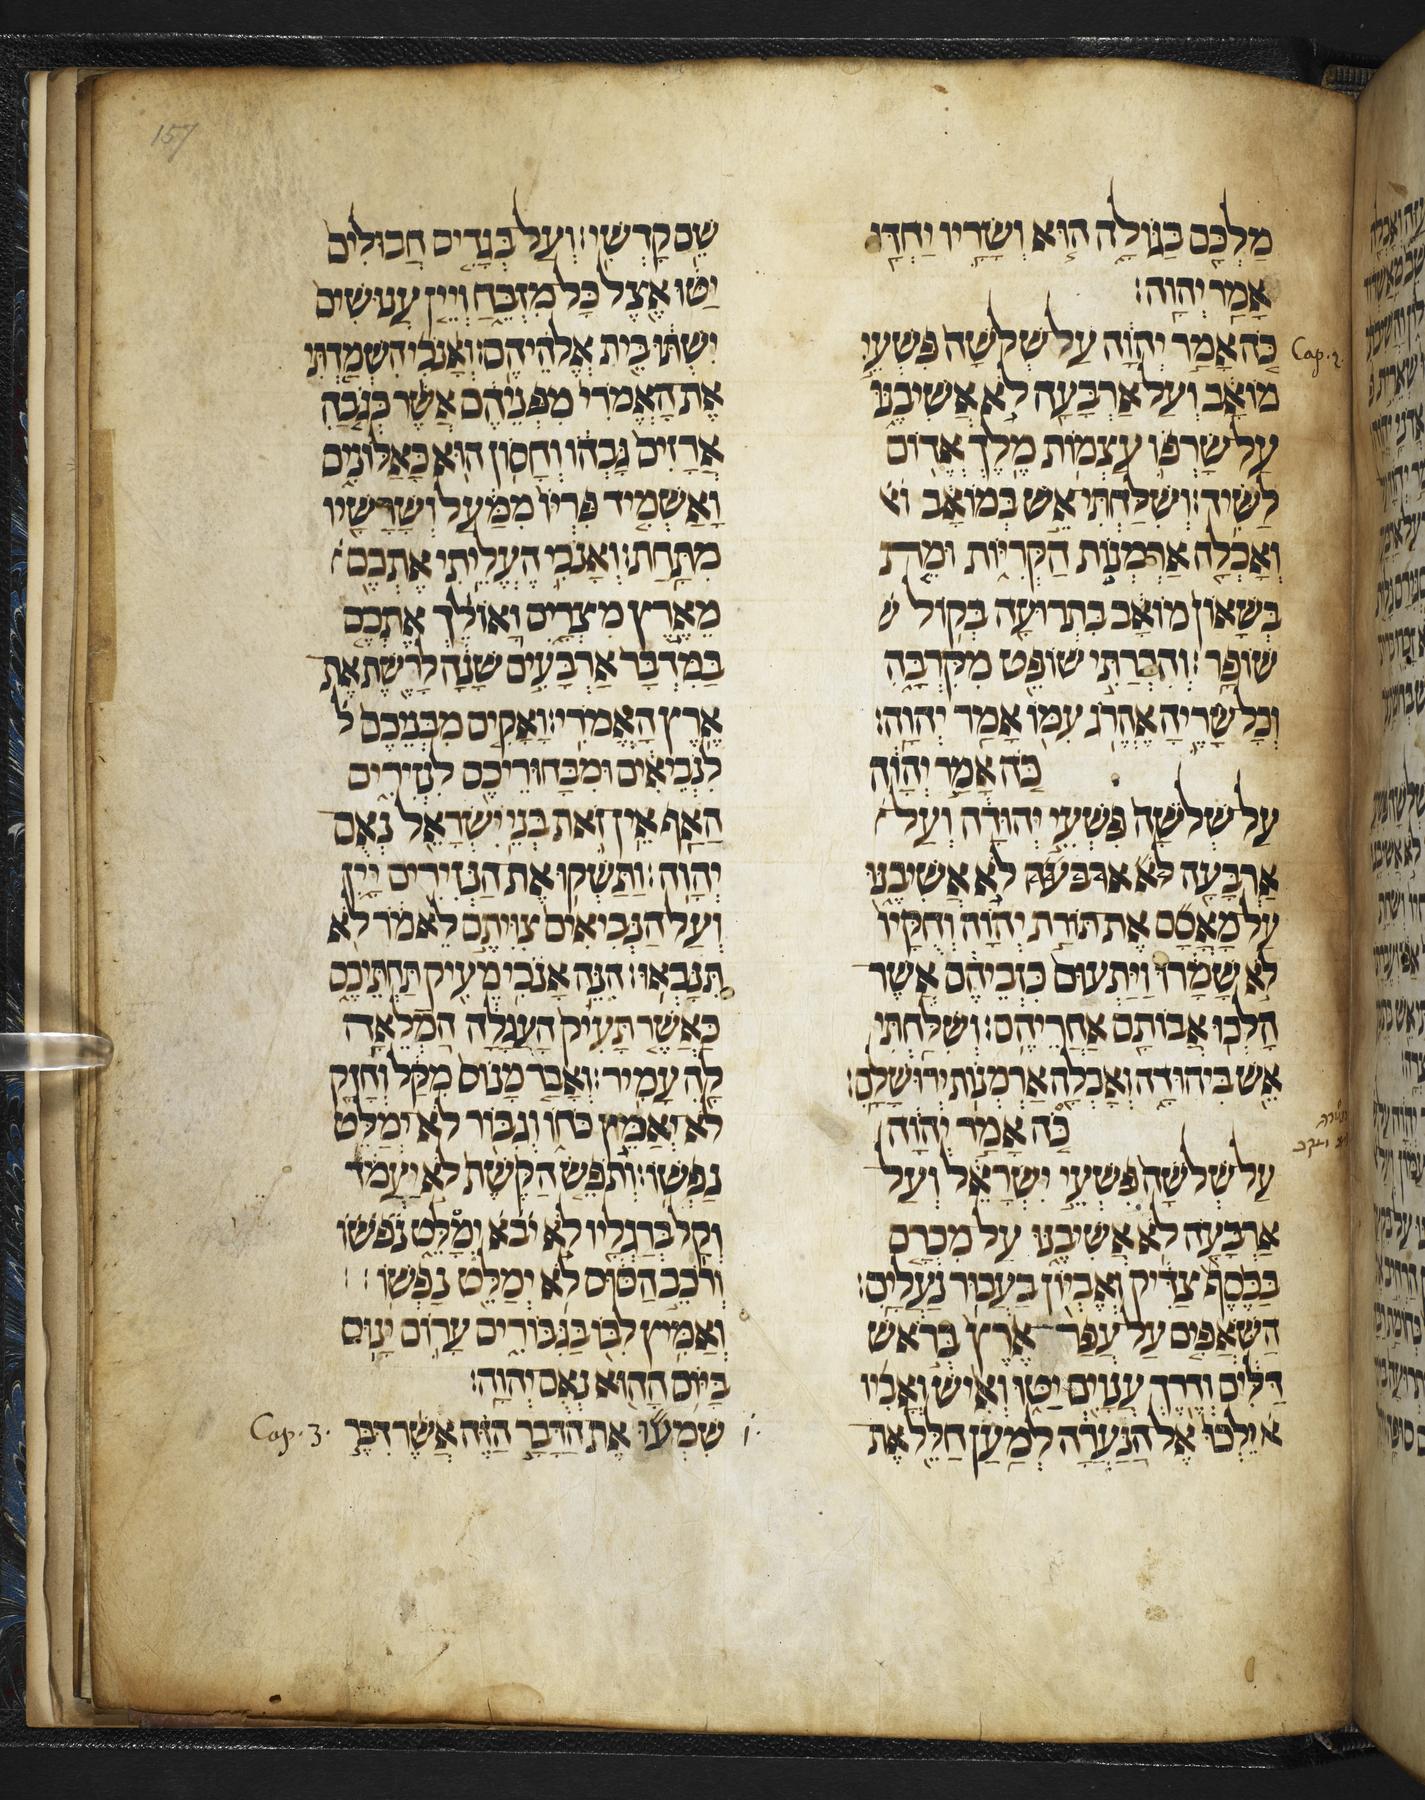 157
מַלְכָּם בַּגּוֹלָה הוּא וְשָׂרָיו יַחְדָּו
אָמַר יְהוָה׃
Cap. 2.
כֹּה אָמַר יְהוָה עַל שְׁלשָׁה פִּשְׁעֵי
מוֹאָב וְעַל אַרְבָּעָה לֹא אֲשִׁיבֶנּוּ
עַל שָׂרְפוֹ עַצְמוֹת מֶלֶךְ אֱדוֹם
לַשִּׂיד׃ וְשִׁלַּחְתִּי אֵשׁ בְּמוֹאָב וא
וְאָכְלָה אַרְמְנוֹת הַקְּרִיּוֹת וּמֵת
בְּשָׁאוֹן מוֹאָב בִּתְרוּעָה בְּקוֹל ש
שׁוֹפָר׃ וְהִכְרַתִּי שׁוֹפֵט מִקִּרְבָּהּ
וְכָל שָׂרֶיהָ אֶהֱרֹג עִמּוֹ אָמַר יְהוָה׃
כֹּה אָמַר יְהוָה
עַל שְׁלֹשָׁה פִּשְׁעֵי יְהוּדָה וְעַל
אַרְבָּעָה לא ארבעה לֹא אֲשִׁיבֶנּוּ
עַל מָאֳסָם אֶת תּוֹרַת יְהוָה וְחֻקָּיו
לֹא שָׁמָרוּ וַיַּתְעוּם כִּזְבֵיהֶם אֲשֶׁר
הָלְכוּ אֲבוֹתָם אַחֲרֵיהֶם׃ וְשִׁלַּחְתִּי
אֵשׁ בִּיהוּדָה וְאָכְלָה אַרְמְנוֹת יְרוּשָׁלִָם׃
כֹּה אָמַר יְהוָה
עַל שְׁלֹשָׁה פִּשְׁעֵי יִשְׂרָאֵל וְעַל
אַרְבָּעָה לֹא אֲשִׁיבֶנּוּ עַל מִכְרָם
בַּכֶּסֶף צַדִּיק וְאֶבְיוֹן בַּעֲבוּר נַעֲלָיִם׃
הַשֹּׁאֲפִים עַל עֲפַר אֶרֶץ בְּרֹאשׁ
דַּלִּים וְדֶרֶךְ עֲנָוִים יַטּוּ וְאִישׁ וְאָבִיו
א יֵלְכוּ אֶל הַנַּעֲרָה לְמַעַן חַלֵּל אֶת
שֵׁם קָדְשִׁי׃ וְעַל בְּגָדִים חֲבוּלִים
יַטּוּ אֵצֶל כָּל מִזְבֵּחַ וְיֵין עֲנוּשִׁים
יִשְׁתּוּ בֵּית אֱלֹהֵיהֶם׃ וְאָנֹכִי הִשְׁמַדְתִּי
אֶת הָאֱמֹרִי מִפְּנֵיהֶם אֲשֶׁר כְּגֹבַהּ
אֲרָזִים גָּבְהוֹ וְחָסֹון הוּא כָּאַלּוֹנִים
וָאַשְׁמִיד פִּרְיוֹ מִמַּעַל וְשָׁרָשָׁיו
מִתָּחַת׃ וְאָנֹכִי הֶעֱלֵיתִי אֶתְכֶם
מֵאֶרֶץ מִצְרָיִם וָאוֹלֵךְ אֶתְכֶם
בַּמִּדְבָּר אַרְבָּעִים שָׁנָה לָרֶשֶׁת אֶת
אֶרֶץ הָאֱמֹרִי׃ וָאָקִים מִבְּנֵיכֶם ל
לִנְבִיאִים וּמִבַּחוּרֵיכֶם לִנְזִירִים
הַאַף אֵין זֹאת בְּנֵי יִשְׂרָאֵל נְאֻם
יְהוָה׃ וַתַּשְׁקוּ אֶת הַנְּזִירִים יָיִן
וְעַל הַנְּבִיאִים צִוִּיתֶם לֵאמֹר לֹא
תִּנָּבְאוּ׃ הִנֵּה אָנֹכִי מֵעִיק תַּחְתֵּיכֶם
כַּאֲשֶׁר תָּעִיק הָעֲגָלָה הַמְלֵאָה
לָהּ עָמִיר׃ וְאָבַד מָנוֹס מִקָּל וְחָזָק
לֹא יְאַמֵּץ כֹּחוֹ וְגִבּוֹר לֹא יְמַלֵּט
נַפְשׁוֹ׃ וְתֹפֵשׂ הַקֶּשֶׁת לֹא יַעֲמֹד
וְקַל בְּרַגְלָיו לֹא יבא יְמַלֵּט נפשו
וְרֹכֵב הַסּוּס לֹא יְמַלֵּט נַפְשׁוֹ׃
וְאַמִּיץ לִבּוֹ בַּגִּבּוֹרִים עָרוֹם יָנוּס
בַּיּוֹם הַהוּא נְאֻם יְהוָה׃
שִׁמְעוּ אֶת הַדָּבָר הַזֶּה אֲשֶׁר דִּבֶּר
Cap. 3.